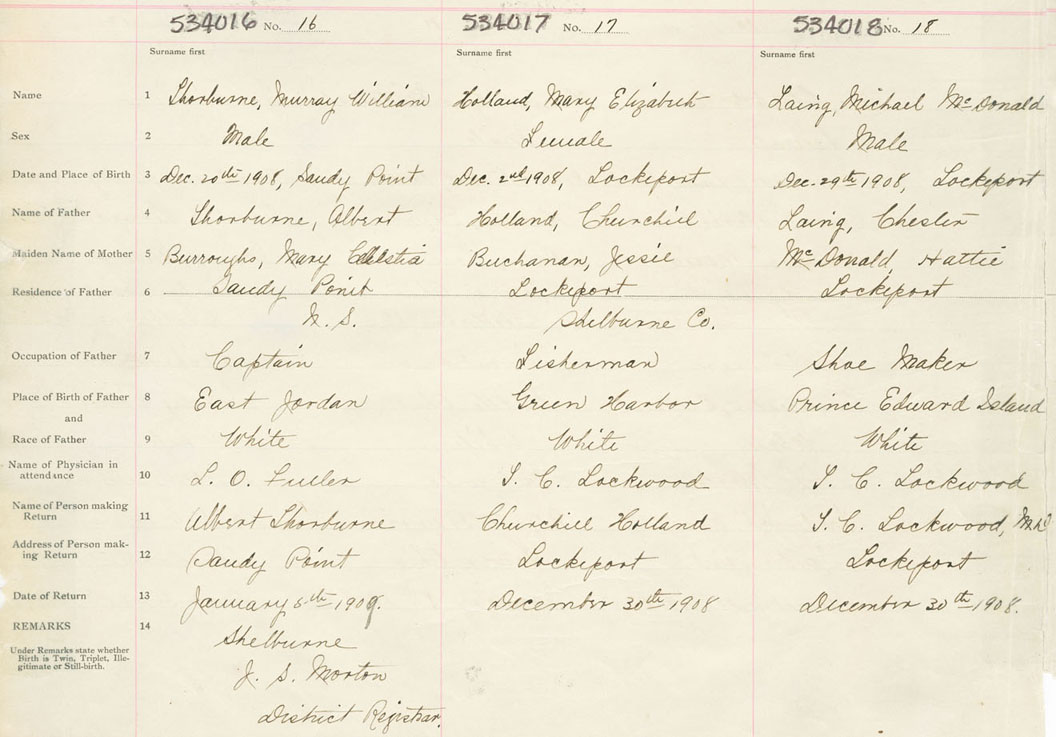 534016 No. 16 534017 No. 17 534018 No. 18
Surname first Surname first Surname first
Name 1 Thorburne, Murray William Holland, Mary Elizabeth Laing, Michael McDonald
Sex 2 Male Female Male
Date and Place of Birth 3 Dec. 20th 1908, Sandy Point Dec. 2nd 1908, Lockeport Dec. 29th 1908, Lockeport
Name of Father 4 Thorburne, Albert Holland, Churchill Laing, Chester
Maiden Name of Mother 5 Burroughs, Mary Buchanan, Jessie McDonald, Hattie
Residence of Father 6 Sandy Point Lockeport Lockeport
N. S. Shelburne Co.
Occupation of Father 7 Captain Fisherman Shoe Maker
Place of Birth of Father 8 East Jordan Green Harbor Prince Edward Island
and
Race of Father 9 White White White
Name of Physician in
attendance 10 L. O. Fuller S. C. Lockwood S. C. Lockwood
Name of Person making
Return 11 Albert Thorburne Churchill Holland S. C. Lockwood,
Address of Person mak-
ing Return 12 Sandy Point Lockeport Lockeport
Date of Return 13 January 5th 1909. December 30th 1908 December 30th 1908.
REMARKS 14 Shelburne
Under Remarks state whether
Birth is Twin, Triplet, Ille-
gitimate or Still-birth.
J. S. Morton
District Registrar.